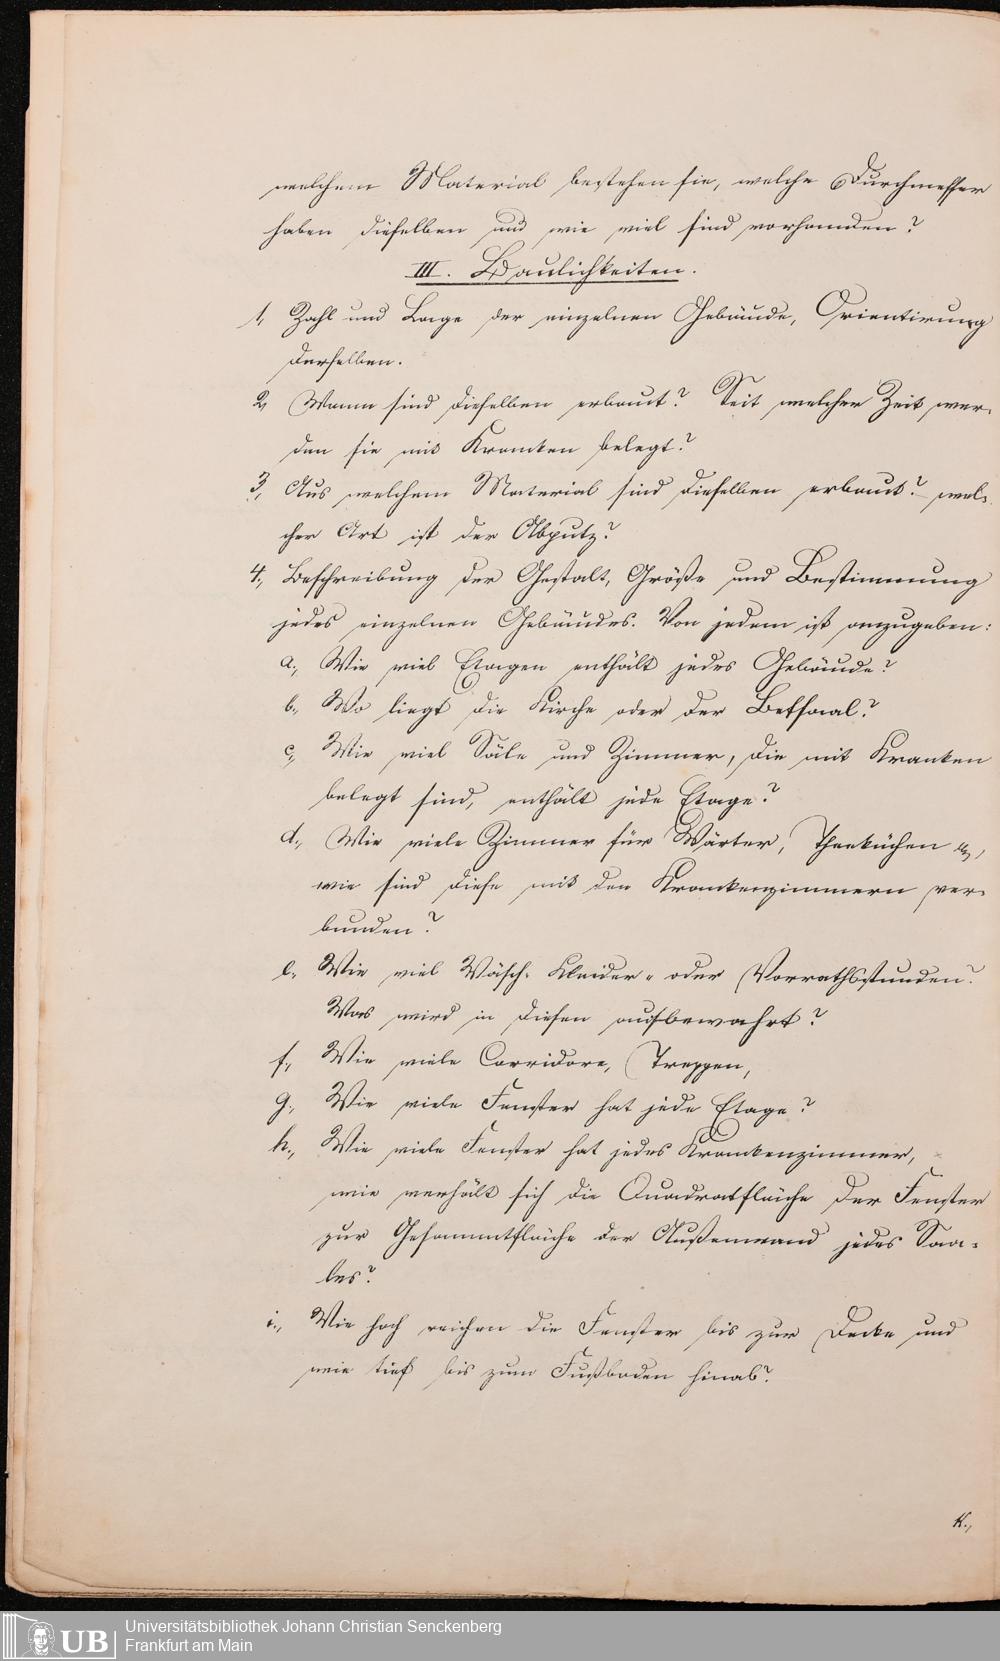 welchem Material bestehen sie, welche Durchmesser
haben dieselben und wie viel sind vorhanden?
III. Baulichkeiten.
1, Zahl und Lage der einzelnen Gebäude, Orientirung
derselben.
2, Wann sind dieselben erbaut? Seit welcher Zeit wer-
den sie mit Kranken belegt?
3, Aus welchem Material sind dieselben erbaut? wel-
cher Art ist der Abputz?
4, Beschreibung der Gestalt, Größe und Bestimmung
jedes einzelnen Gebäudes. Von jedem ist anzugeben:
a., Wie viel Etagen enthält jedes Gebäude?
b., Wo liegt die Kirche oder der Betsaal?
c., Wie viel Säle und Zimmer, die mit Kranken
belegt sind, enthält jede Etage?
d., Wie viele Zimmer für Wärter, Theeküchen etc,
wie sind diese mit den Krankenzimmern ver-
bunden?
e., Wie viel Wäsch- Kleider- oder Vorrathsstunden?
Was wird in diesen aufbewahrt?
f., Wie viele Corridore, Treppen,
g., Wie viele Fenster hat jede Etage?
h., Wie viele Fenster hat jedes Krankenzimmer,
wie verhält sich die Quadratfläche der Fenster
zur Gesammtfläche der Außenwand jedes Saa-
les?
i., Wie hoch reichen die Fenster bis zur Decke und
wie tief bis zum Fußboden hinab?
k.,
UB
Universitätsbibliothek Johann Christian Senckenberg
Frankfurt am Main